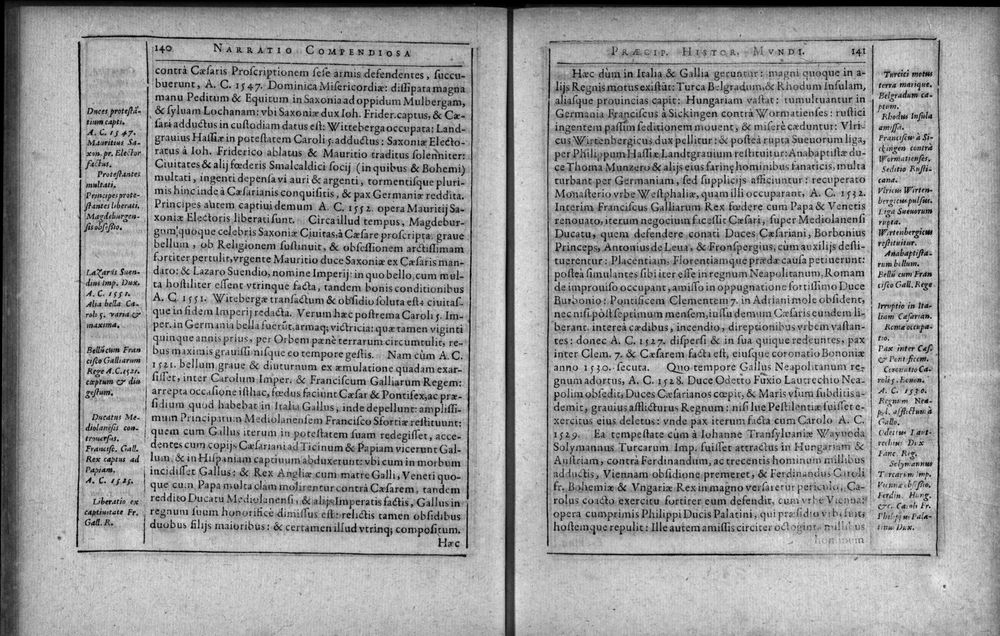 140 NARRATIO COMPENDIOSA
contrà Cæsaris Proscriptionem sese armis defendentes, succu-
buerunt, A. C. 1547. Dominica Misericordiæ: dissipata magna
manu Peditum & Equitum in Saxonia ad oppidum Mulbergam,
& syluam Lochanam: vbi Saxoniæ dux Ioh. Frider. captus, & Cæ-
sari adductus in custodiam datus est: Witteberga occupata: Land-
grauius Hassiæ in potestatem Caroli 5. adductus: Saxoniæ Electo-
ratus à Ioh. Friderico ablatus & Mauritio traditus solenniter:
Ciuitates & alij fœderis Smalcaldici socij (in quibus & Bohemi)
multati, ingenti depensa vi auri & argenti, tormentisque pluri-
mis hinc inde à Cæsarianis conquisitis, & pax Germaniæ reddita.
Principes autem captiui demum A. C. 1552. opera Mauritij Sa-
xoniæ Electoris liberati sunt. Circa illud tempus, Magdebur-
gum quoque celebris Saxoniæ Ciuitas, à Cæsare proscripta graue
bellum, ob Religionem sustinuit, & obsessionem arctissimam
fortiter pertulit, vrgente Mauritio duce Saxoniæ ex Cæsaris man-
dato: & Lazaro Suendio, nomine Imperij: in quo bello cum mul-
ta hostiliter essent vtrinque facta, tandem bonis conditionibus
A. C. 1551. Witebergæ transactum & obsidio soluta est: ciuitas-
que in fidem Imperij redacta. Verum hæc postrema Caroli 5. Im-
per. in Germania bella fuerūt, armaq; victricia: quæ tamen viginti
quinque annis prius, per Orbem pænè terrarum circumtulit, re-
bus maximis grauissimisque eo tempore gestis. Nam cùm A. C.
1521. bellum graue & diuturnum ex æmulatione quadam exar-
sisset, inter Carolum Imper. & Franciscum Galliarum Regem:
arrepta occasione isthac, fœdus faciunt Cæsar & Pontifex, ac præ-
sidium quod habebat in Italia Gallus, inde depellunt: amplissi-
mum Principatum Mediolanensem Francisco Sfortiæ restituunt:
quem cum Gallus iterum in potestatem suam redegisset, acce-
dentes cum copijs Cæsariani ad Ticinum & Papiam vicerunt Gal-
lum, & in Hispaniam captiuum abduxerunt: vbi cum in morbum
incidisset Gallus: & Rex Angliæ cum matre Galli, Veneri quo-
que cum Papa multa clam molirentur contrà Cæsarem, tandem
reddito Ducatu Mediolanensi, & alijs Imperatis factis, Gallus in
regnum suum honorificè dimissus est: relictis tamen obsidibus
duobus filijs maioribus: & certamen illud vtrinq; compositum.
Hæc
Duces protestā-
tium capti.
A. C. 1547.
Mauritus Sa-
xon. pr. Elector
factus.
Protestantes
multati,
Principes prote-
stantes liberati.
Magdeburgen-
sis obsessio.
Lazarus Suen-
dius Imp. Dux.
A. C. 1551.
Alia bella Ca-
roli 5. varia &
maxima.
Bellūcum Fran
cisco Galliarum
Rege A.C.1521.
cœptum & diu
gestum.
Ducatus Me-
diolanensis con-
trouersus.
Francisc. Gall.
Rex captus ad
Papiam.
A. C. 1525.
Liberatio ex
captiuitate Fr.
Gall. R.
PRÆCIP. HISTOR. MVNDI. 141
Hæc dùm in Italia & Gallia geruntur: magni quoque in a-
lijs Regnis motus existāt: Turca Belgradum, & Rhodum Insulam,
aliasque prouincias capit: Hungariam vastat: tumultuantur in
Germania Franciscus à Sickingen contrà Wormatienses: rustici
ingentem passim seditionem mouent, & miserè cæduntur: Vlri-
cus Wirtenbergicus dux pellitur: & postea rupta Sueuorum liga,
per Philippum Hassiæ Landtgrauium restituitur: Anabaptistæ du-
ce Thoma Munzero & alijs eius farinę hominibus fanaticis, multa
turbant per Germaniam, sed supplicijs afficiuntur: recuperato
Monasterio vrbe Westphaliæ, quam illi occuparant. A. C. 1532.
Interim Franciscus Galliarum Rex fœdere cum Papa & Venetis
renouato, iterum negocium facessit Cæsari, super Mediolanensi
Ducatu, quem defendere conati Duces Cæsariani, Borbonius
Princeps, Antonius de Leua, & Fronspergius, cùm auxilijs desti-
tuerentur: Placentiam, Florentiamque prædæ causa petiuerunt:
postea simulantes sibi iter esse in regnum Neapolitanum, Romam
de improuiso occupant, amisso in oppugnatione fortissimo Duce
Burbonio: Pontificem Clementem 7. in Adriani mole obsident,
nec nisi post septimum mensem, iussu demum Cæsaris eundem li-
berant. interea cædibus, incendio, direptionibus vrbem vastan-
tes: donec A. C. 1527. dispersi & in sua quique redeuntes, pax
inter Clem. 7. & Cæsarem facta est, eiusque coronatio Bononiæ
anno 1530. secuta. Quo tempore Gallus Neapolitanum re-
gnum adortus, A. C. 1528. Duce Odetto Fuxio Lautrechio Nea-
polim obsedit, Duces Cæsarianos cœpit, & Maris vsum subditis a-
demit, grauius afflicturus Regnum: nisi lue Pestilentiæ fuisset e-
xercitus eius deletus: vnde pax iterum facta cum Carolo A. C.
1529. Ea tempestate cùm à Iohanne Transyluaniæ Wayuoda
Solymannus Turcarum Imp. fuisset attractus in Hungariam &
Austriam, contrà Ferdinandum, ac trecentis hominum millibus
adductis, Viennam obsidione premeret, & Ferdinandus Caroli
fr. Bohemiæ & Vngariæ Rex in magno versaretur periculo, Ca-
rolus coacto exercitu fortiter eum defendit, cum vrbe Vienna:
opera cumprimis Philippi Ducis Palatini, qui præsidio vrbi fuit,
hostemque repulit: Ille autem amissis circiter octoginta millibus
hominum
Turcici motus
terra marique.
Belgradum ca-
ptum.
Rhodus Insula
amissa.
Franciscus à Si-
ckingen contrà
Wormatienses,
Seditio Rusti-
cana.
Vlricus Wirten-
bergicus pulsus.
Liga Sueuorum
rupta.
Wirtenbergicus
restituitur.
Anabaptista-
rum bellum.
Bellū cum Fran
cisco Gall. Rege
Irruptio in Ita-
liam Cæsarian.
Roma occupa-
tio.
Pax inter Cæs.
& Pontificem.
Coronatio Ca-
roli 5. Bonon.
A. C. 1530.
Regnum Nea-
pol. afflictum à
Gallo.
Odettus Laut-
rechius Dux
Franc. Reg.
Solymannus
Turcarum Imp.
Vienna obsessio.
Ferdin. Hung.
&c. Caroli Fr.
Philippus Pala-
tinus Dux.